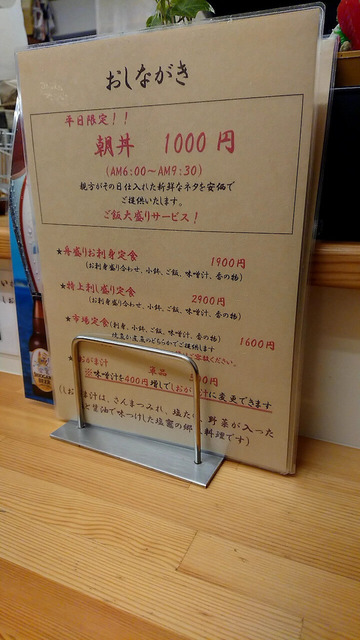 おしながき
平日限定！！
朝丼 1000円
(AM6:00～AM9:30)
親方がその日仕入れた新鮮なネタを安価で
ご提供いたします。
ご飯大盛りサービス！
★舟盛りお刺身定食 1900円
(お刺身盛り合わせ、小鉢、ご飯、味噌汁、香の物)
★特上刺し盛り定食 2900円
(お刺身盛り合わせ、小鉢、ご飯、味噌汁、香の物)
★市場定食(刺身、小鉢、ご飯、味噌汁、香の物) 1600円
焼魚か煮魚のどちらかでご提供します
ください。
おがま汁 単品 00円
※味噌汁を400円増しでしおがま汁に変更できます
(しお 汁は、さんまつみれ、塩たら、野菜が入った
と醤油で味つけした塩竈の郷 料理です)